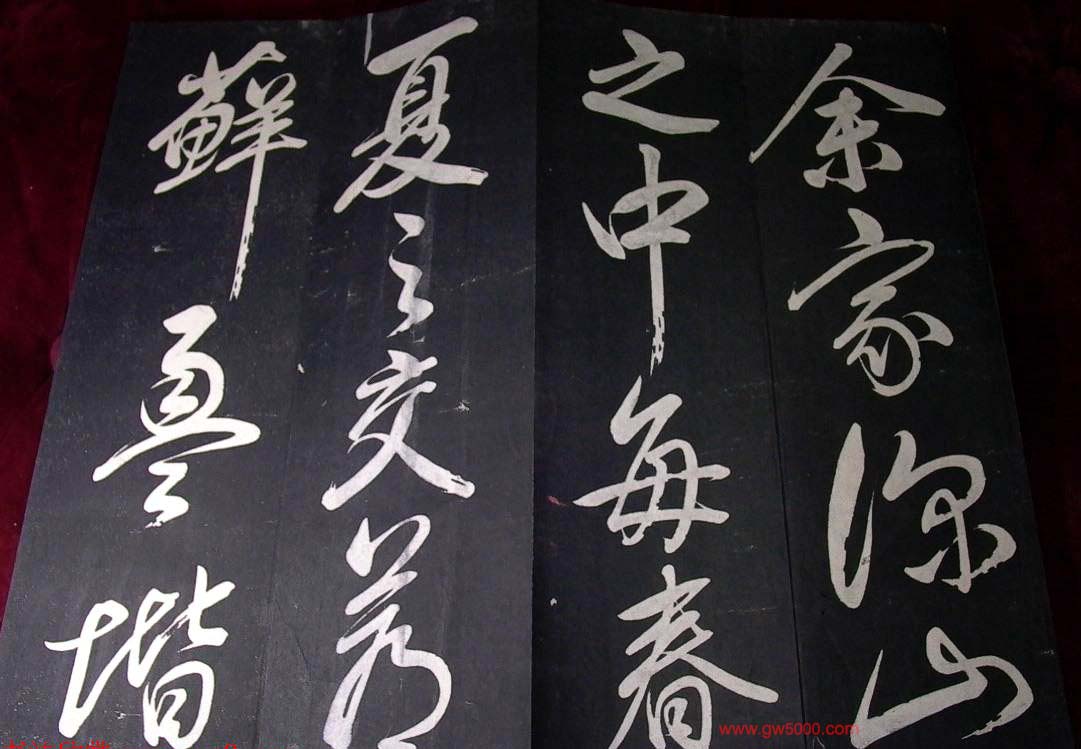 余家深山
之中每春
夏之交蒼
蘚盈堦
www.gw5000.com